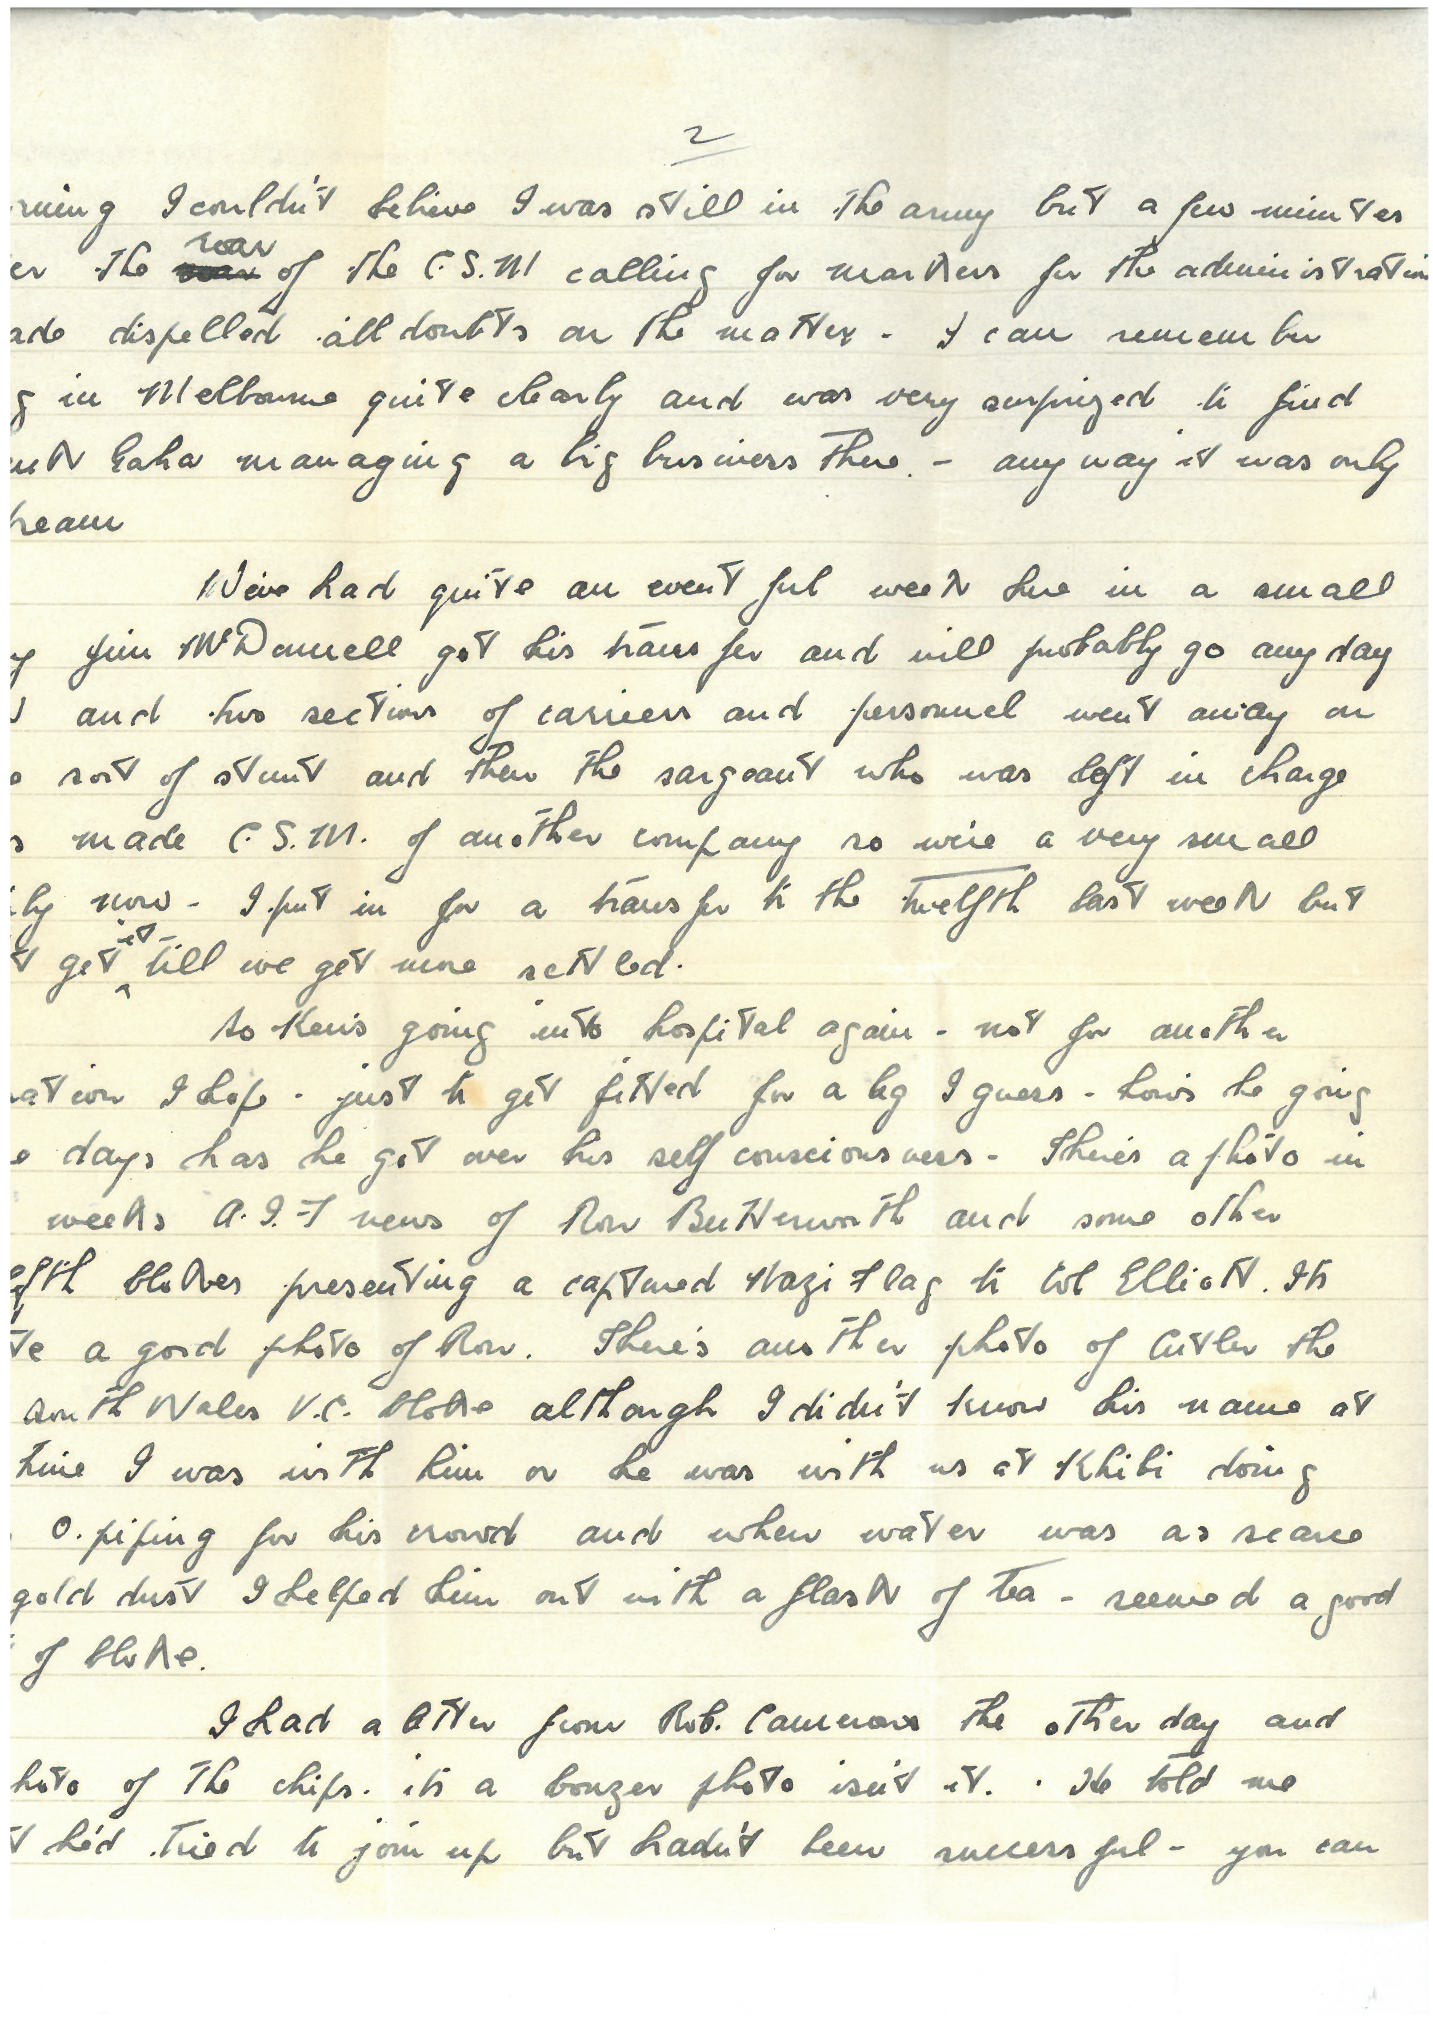 2
rning I couldn't believe I was still in the army but a few minutes
er the roar of the C.S.M calling for markers for the administration
ade dispelled all doubts on the matter - I can remember
g in Melbourne quite clearly and was very surprized to find
nk Gaha managing a big business there. - anyway it was only
ream
We've had quite an eventful week here in a small
y Jim McDonnell got his transfer and will probably go any day
and two sections of carriers and personnel went away on
e sort of stunt and then the sargeant who was left in charge
s made C.S.M. of another company so we're a very small
ily now - I put in for a transfer to the twelfth last week but
t get it till we get more settled.
So Ken's going into hospital again - not for another
ration I hope - just to get fitted for a leg I guess - how's he going
e days has he got over his self consciousness - There's a photo in
weeks A.I.F news of Ron Butterworth and some other
elfth blokes presenting a captured Nazi Flag to Col Elliott. Its
te a good photo of Ron. There's another photo of Cutler the
South Wales V.C. bloke although I didn't know his name at
time I was with him or he was with us at Khibi doing
O. piping for his crowd and when water was as scarce
gold dust I helped him out with a flask of tea - seemed a good
of bloke.
I had a letter from Rob. Cameron the other day and
hoto of the chips. its a bonzer photo isn't it. He told me
t he'd tried to join up but hadn't been successful - you can